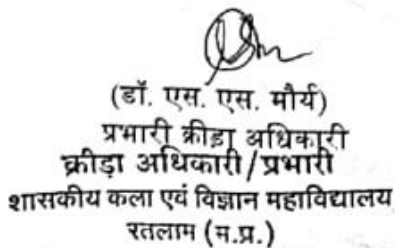 (डॉ. एस. एस. मौर्य)
प्रभारी क्रीड़ा अधिकारी
क्रीड़ा अधिकारी/प्रभारी
शासकीय कला एवं विज्ञान महाविद्यालय
रतलाम (म.प्र.)